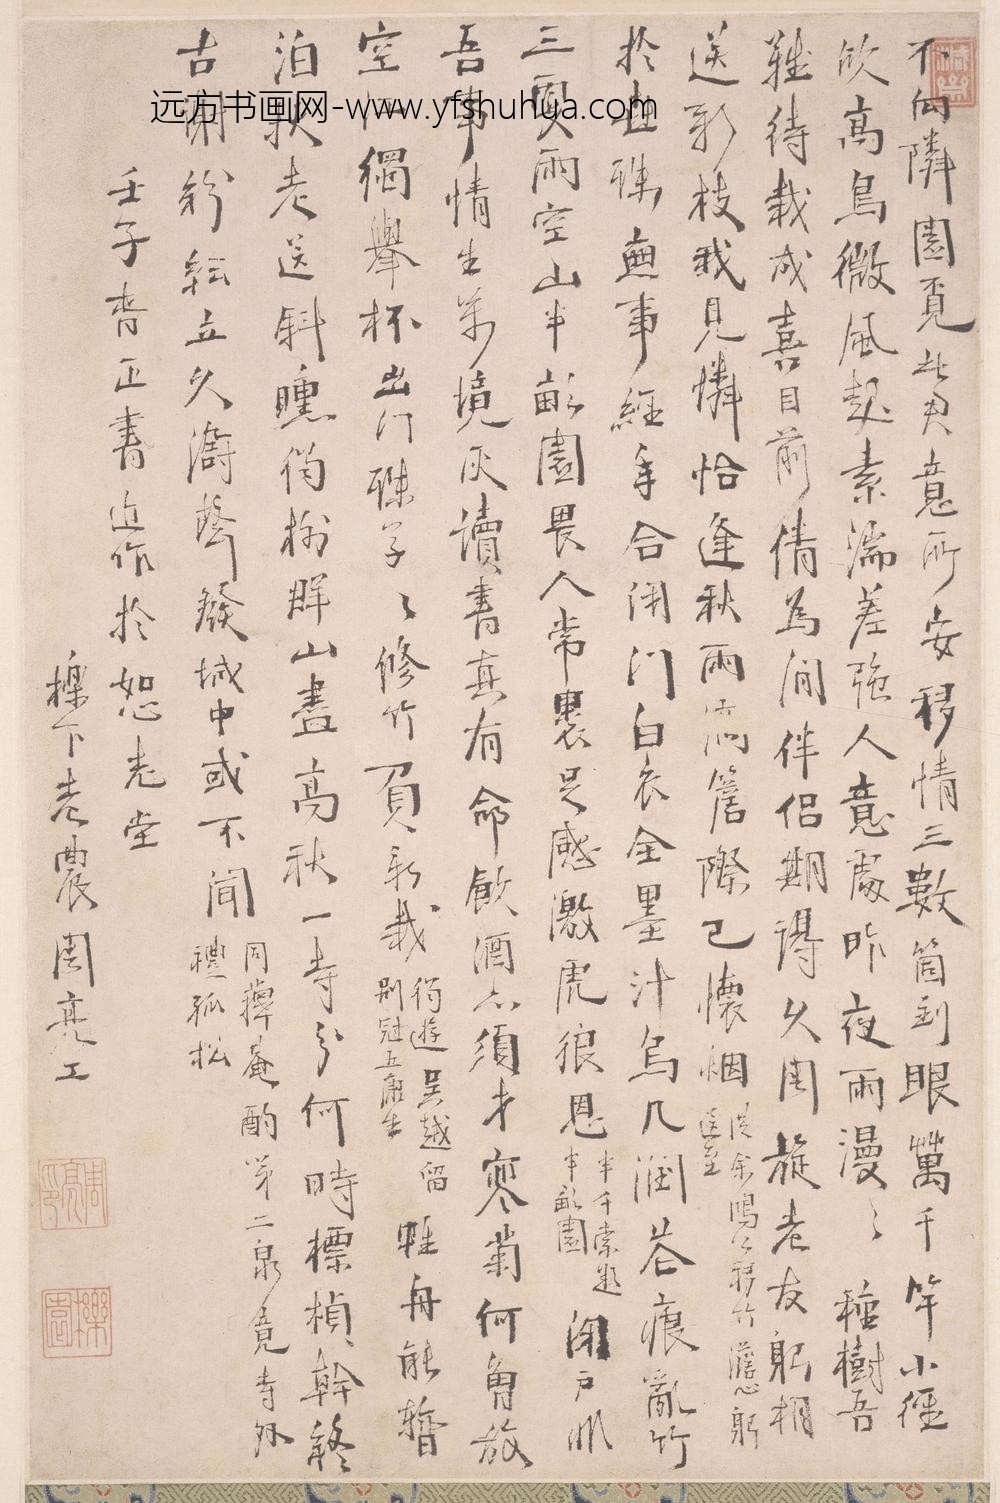 不向隣園覓此君意所安移情三數箇到眼萬千竿小徑
欣高鳥微風起素湍差強人意處昨夜雨漫〻種樹吾
難待栽成喜目前倩為閒伴侶期得久周旋老友躬相
送新枝我見憐恰逢秋雨滴簷際已懷烟
從余鴻公移竹澹心躬
送至
於世殊無事經年合閉門白衣全墨汁烏几潤苔痕亂竹
三更雨空山半畝園畏人常裹足感激虎狼恩
半千索題
半畝園
閉戶非
吾事情生莽境灰讀書真有命飲酒亦須才寒菊何曾放
空江獨舉杯出門殊孑〻修竹負新栽
獨遊吳越留
別冠五廉生
雖舟能暫
泊秋老送斜曛倚樹群山盡高秋一寺分何時標楨幹終
古謝紛紜立久濤聲發城中或不聞
同籜菴酌第二泉覓寺外
禮孤松
壬子書正書近作於恕老堂
櫟下老農周亮工
周亮工印
櫟園
远方书画网-www.yfshuhua.com